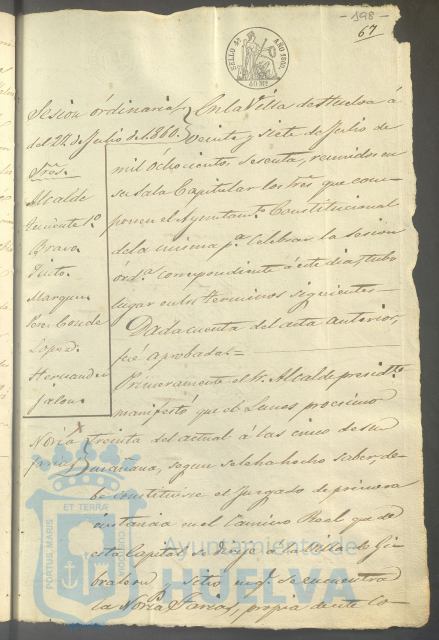 - 198 -
67
SELLO 4º AÑO 1860.
40 Ms.
Sesion ordinaria
del 27 de Julio de 1860.
Sres.
Alcalde
Teniente 1º
Bravo
Pinto
Marquez
Perez Conde
Lopez
Hernandez
Jalon
En la Villa de Huelva á
veinte y siete de Julio de
mil ochocientos sesenta, reunidos en
su Sala Capitular los Sres que com-
ponen el Ayuntamto Constitucional
de la misma pa celebrar la sesion
orda correspondiente á este dia, tubo
lugar en los terminos siguientes
Dada cuenta del acta anterior,
fué aprobada =
Primeramente el Sr Alcalde presidte
manifestó que el Lunes procsimo
Noria
treinta del actual á las cinco de su
mañana, segun se le ha hecho saber, de-
be constituirse el Juzgado de primera
instancia en el Camino Real que de
esta Capital se dirije á la Villa de Gi-
braleon, sitio en qe se encuentra
la Noria propia de este Co-
PORTUS MARIS ET TERRAE CUSTODIA
Ayuntamiento de
HUELVA